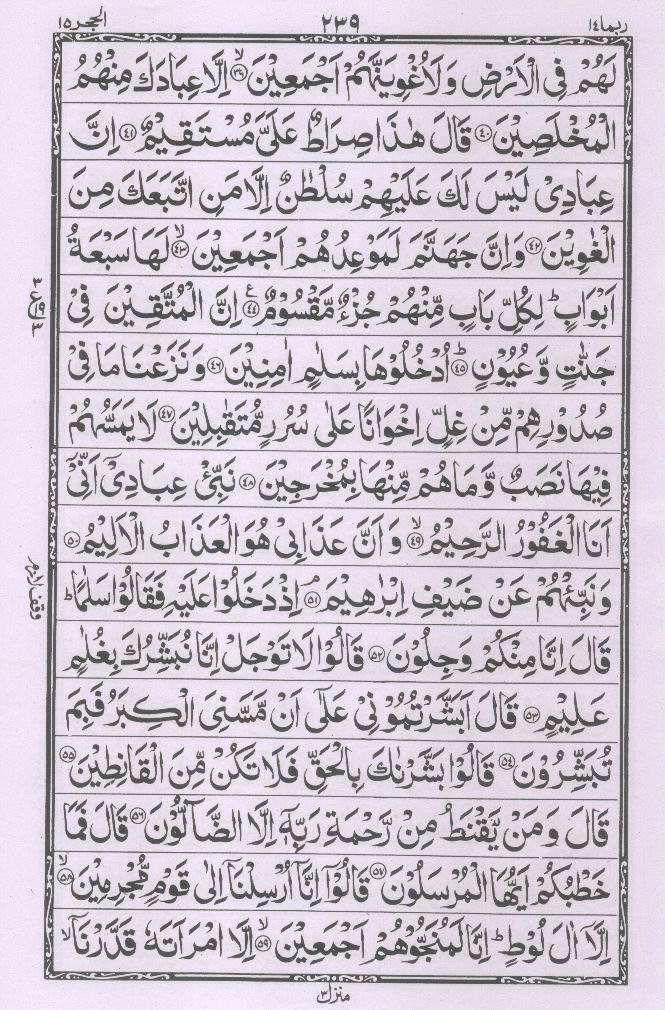 ربما ١٤ ٢٣٩ الحجر ١٥
لَهُمْ فِى الْاَرْضِ وَلَاُغْوِيَنَّهُمْ اَجْمَعِيْنَ ۙ‏﴿۳۹﴾ اِلَّا عِبَادَكَ مِنْهُمُ
الْمُخْلَصِيْنَ ﴿۴۰﴾ قَالَ هٰذَا صِرَاطٌ عَلَىَّ مُسْتَقِيْمٌ ﴿۴۱﴾ اِنَّ
عِبَادِىْ لَيْسَ لَكَ عَلَيْهِمْ سُلْطٰنٌ اِلَّا مَنِ اتَّبَعَكَ مِنَ
الْغٰوِيْنَ ﴿۴۲﴾ وَاِنَّ جَهَنَّمَ لَمَوْعِدُهُمْ اَجْمَعِيْنَ ۙ﴿۴۳﴾ لَهَا سَبْعَةُ
اَبْوَابٍ ؕ لِكُلِّ بَابٍ مِّنْهُمْ جُزْءٌ مَّقْسُوْمٌ ﴿۴۴﴾ ع اِنَّ الْمُتَّقِيْنَ فِىْ
جَنّٰتٍ وَّعُيُوْنٍ ؕ﴿۴۵﴾ اُدْخُلُوْهَا بِسَلٰمٍ اٰمِنِيْنَ ﴿۴۶﴾ وَنَزَعْنَا مَا فِىْ
صُدُوْرِهِمْ مِّنْ غِلٍّ اِخْوَانًا عَلٰى سُرُرٍ مُّتَقٰبِلِيْنَ ﴿۴۷﴾ لَا يَمَسُّهُمْ
فِيْهَا نَصَبٌ وَّمَا هُمْ مِّنْهَا بِمُخْرَجِيْنَ ﴿۴۸﴾ نَبِّئْ عِبَادِىْۤ اَنِّىْۤ
اَنَا الْغَفُوْرُ الرَّحِيْمُ ۙ﴿۴۹﴾ وَاَنَّ عَذَابِىْ هُوَ الْعَذَابُ الْاَلِيْمُ ﴿۵۰﴾
وَنَبِّئْهُمْ عَنْ ضَيْفِ اِبْرٰهِيْمَ ۘ﴿۵۱﴾ اِذْ دَخَلُوْا عَلَيْهِ فَقَالُوْا سَلٰمًا ؕ
قَالَ اِنَّا مِنْكُمْ وَجِلُوْنَ ﴿۵۲﴾ قَالُوْا لَا تَوْجَلْ اِنَّا نُبَشِّرُكَ بِغُلٰمٍ
عَلِيْمٍ ﴿۵۳﴾ قَالَ اَبَشَّرْتُمُوْنِىْ عَلٰٓى اَنْ مَّسَّنِىَ الْكِبَرُ فَبِمَ
تُبَشِّرُوْنَ ﴿۵۴﴾ قَالُوْا بَشَّرْنٰكَ بِالْحَقِّ فَلَا تَكُنْ مِّنَ الْقَانِطِيْنَ ﴿۵۵﴾
قَالَ وَمَنْ يَّقْنَطُ مِنْ رَّحْمَةِ رَبِّهٖۤ اِلَّا الضَّآلُّوْنَ ﴿۵۶﴾ قَالَ فَمَا
خَطْبُكُمْ اَيُّهَا الْمُرْسَلُوْنَ ﴿۵۷﴾ قَالُوْۤا اِنَّاۤ اُرْسِلْنَاۤ اِلٰى قَوْمٍ مُّجْرِمِيْنَ ۙ﴿۵۸﴾
اِلَّاۤ اٰلَ لُوْطٍ ؕ اِنَّا لَمُنَجُّوْهُمْ اَجْمَعِيْنَ ۙ﴿۵۹﴾ اِلَّا امْرَاَتَهٗ قَدَّرْنَاۤ ۙ
منزل ٣